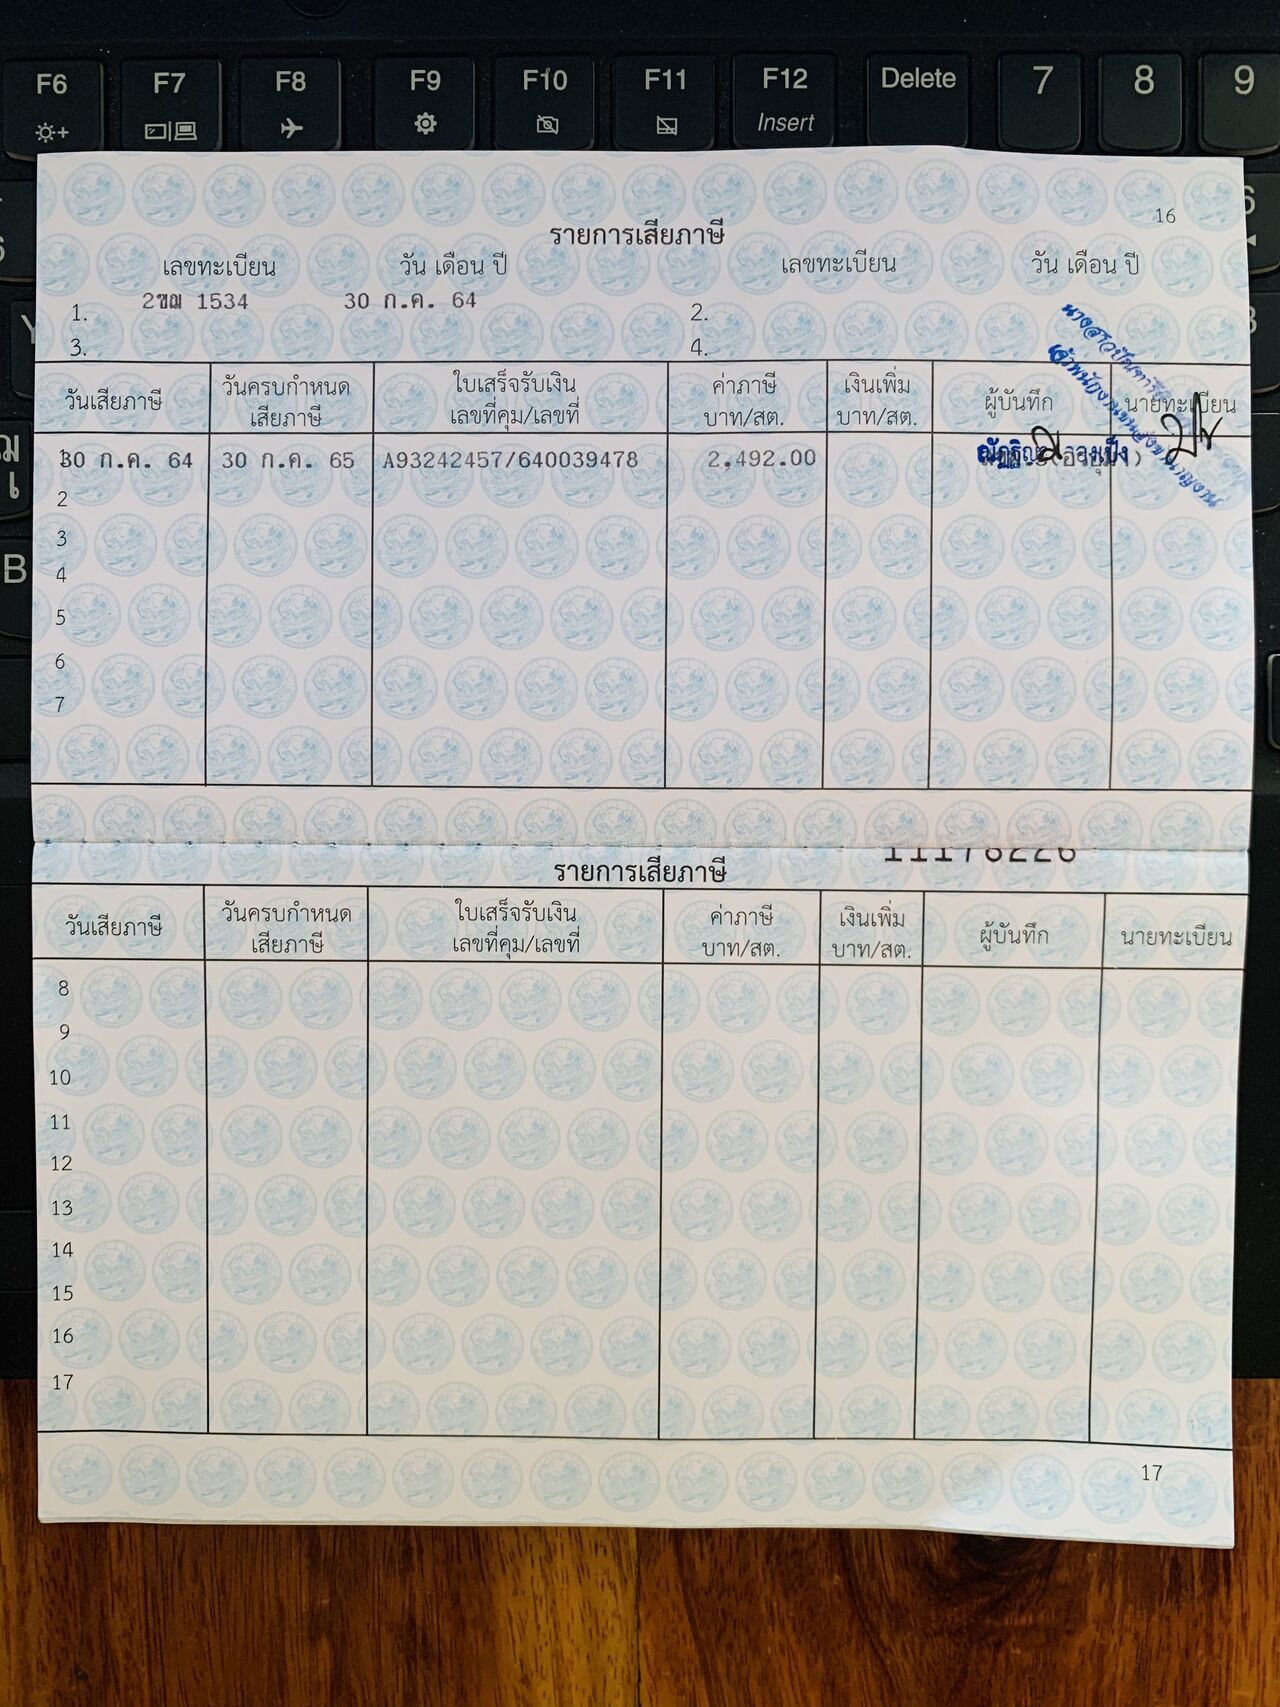 F6 F7 F8 F9 F10 F11 F12 Delete 7 8 9
Insert
16
รายการเสียภาษี
เลขทะเบียน วัน เดือน ปี เลขทะเบียน วัน เดือน ปี
1. 2ฃฌ 1534 30 ก.ค. 64 2.
3. 4.
วันเสียภาษี วันครบกำหนดเสียภาษี ใบเสร็จรับเงิน เลขที่คุม/เลขที่ ค่าภาษี บาท/สต. เงินเพิ่ม บาท/สต. ผู้บันทึก นายทะเบียน
1 30 ก.ค. 64 30 ก.ค. 65 A93242457/640039478 2,492.00
2
3
4
5
6
7
11178226
รายการเสียภาษี
วันเสียภาษี วันครบกำหนดเสียภาษี ใบเสร็จรับเงิน เลขที่คุม/เลขที่ ค่าภาษี บาท/สต. เงินเพิ่ม บาท/สต. ผู้บันทึก นายทะเบียน
8
9
10
11
12
13
14
15
16
17
17
B